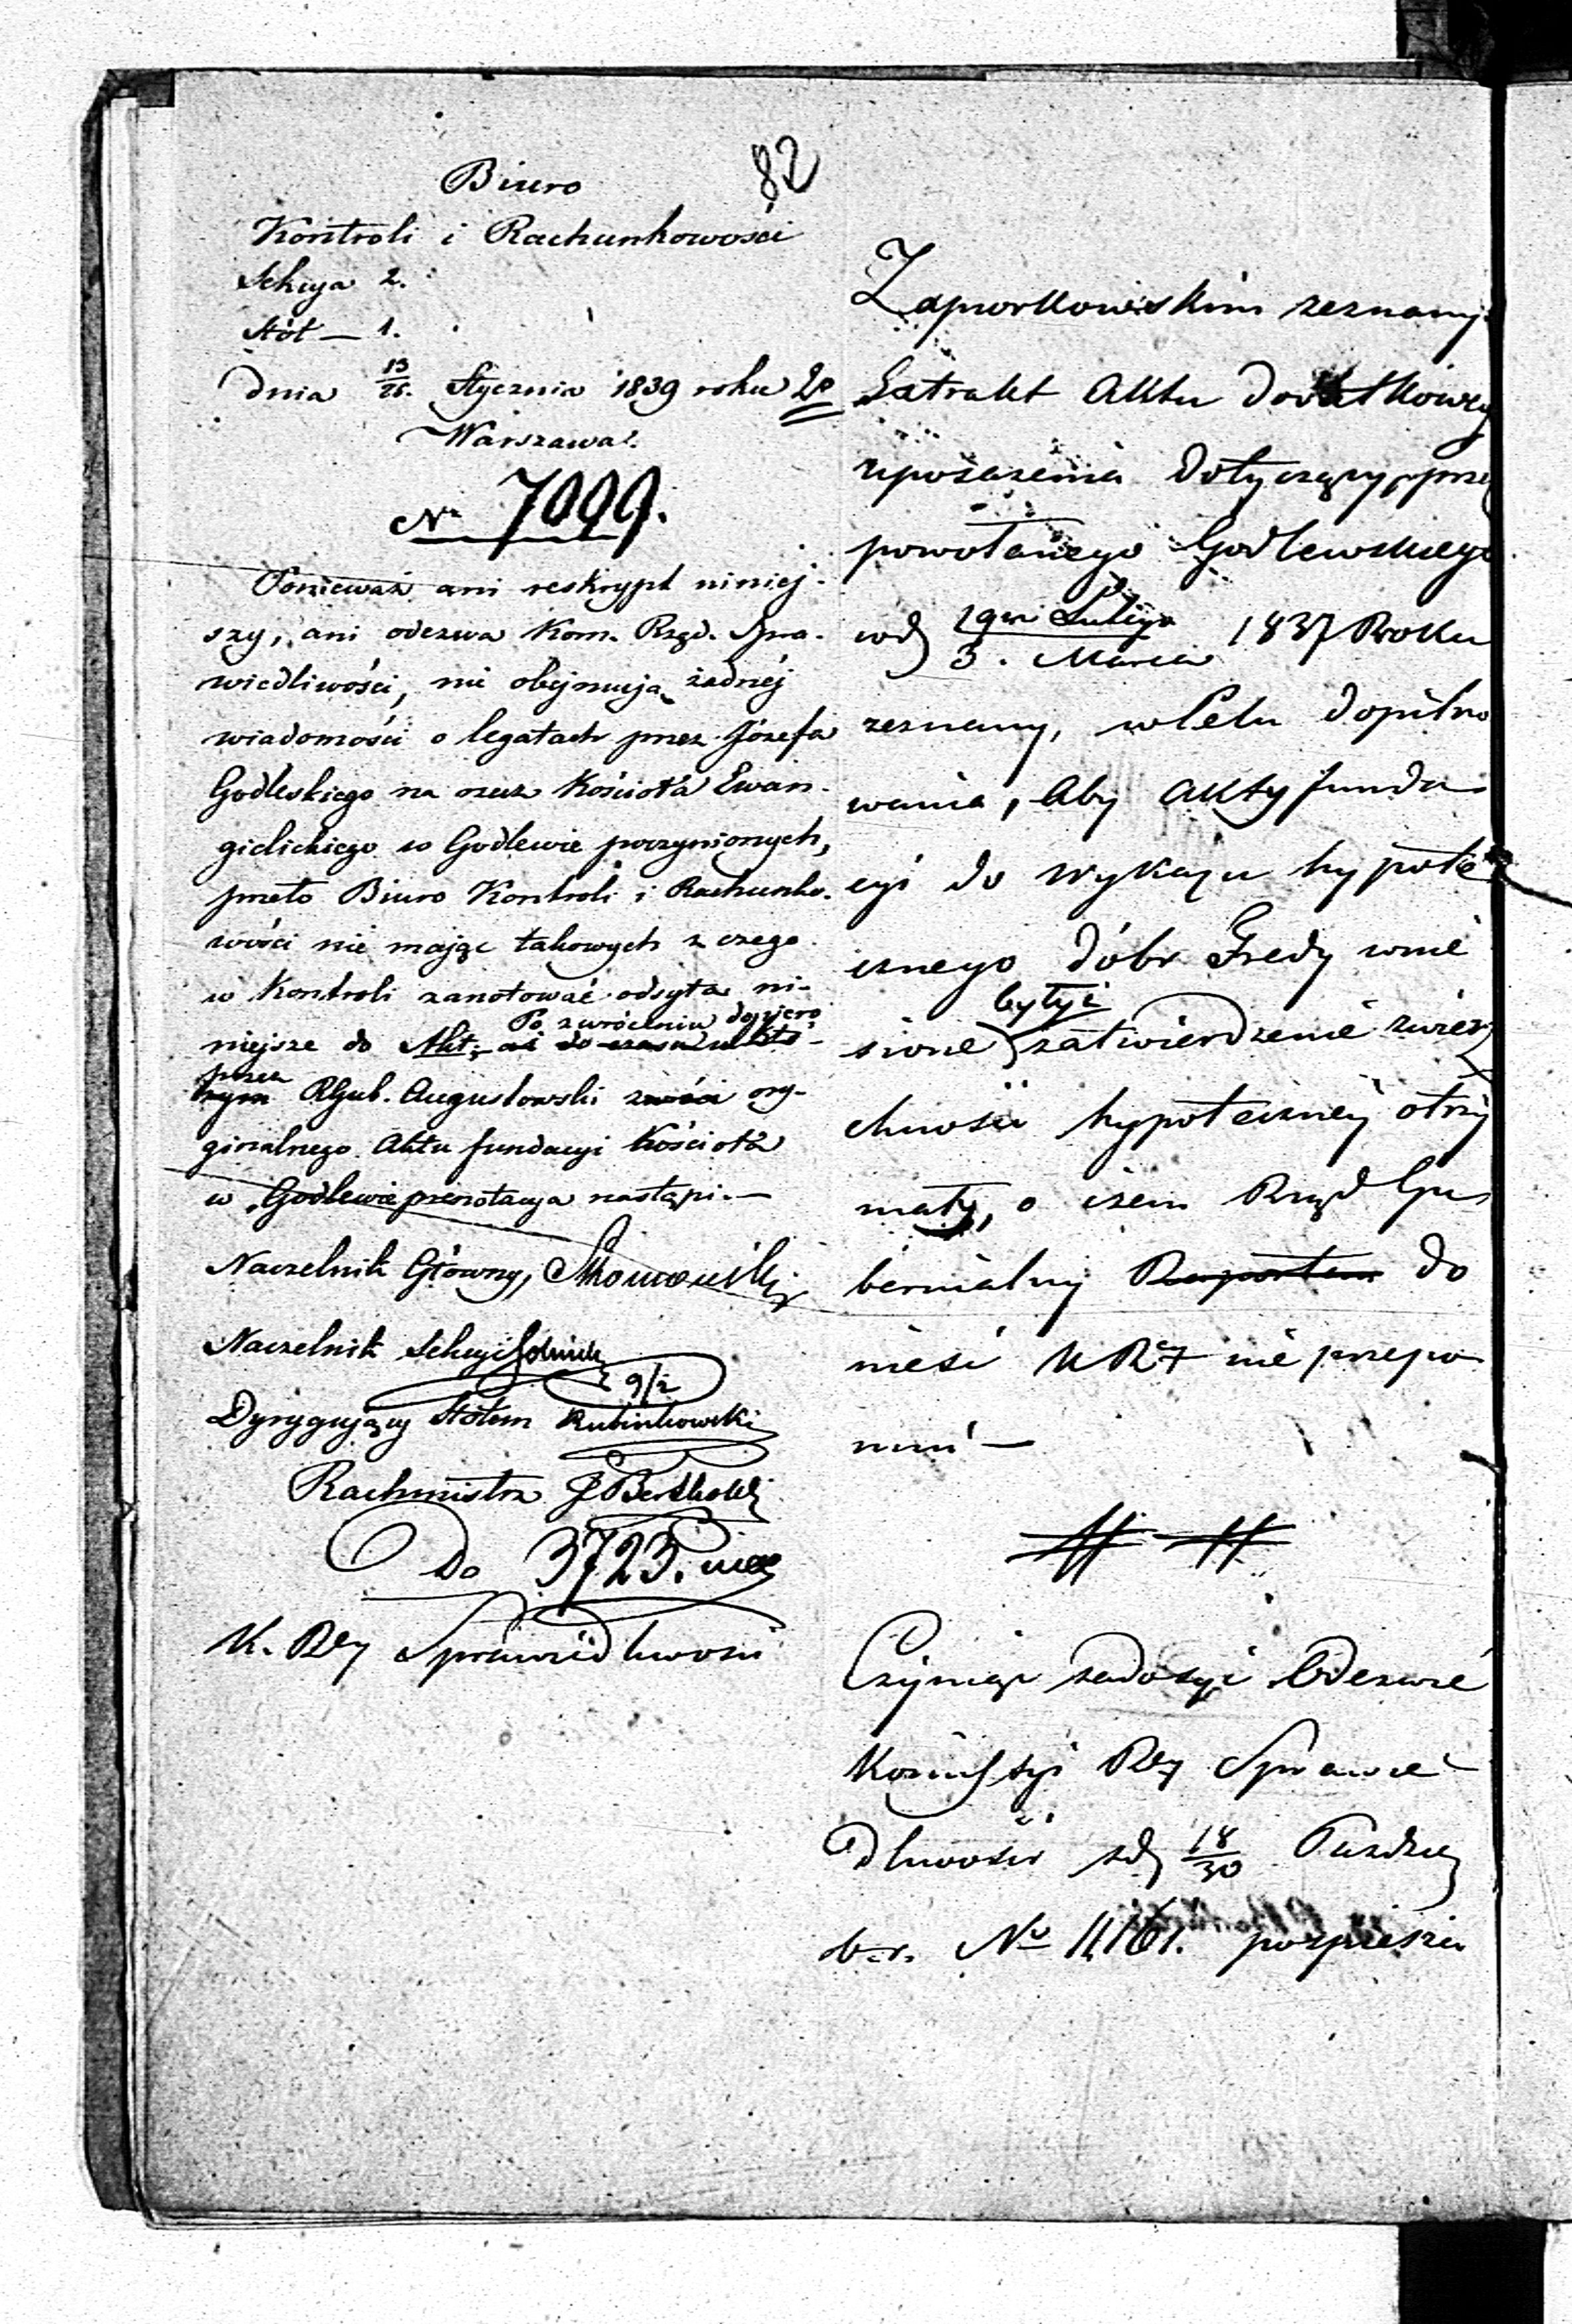 82
Biuro
Kontroli i Rachunkowości
Sekcya 2.
Stół — 1.
Dnia 13/25. Stycznia 1839 roku
Warszawa.
No 7099.
Ponieważ ani reskrypt niniej-
szy, ani odezwa Kom. Rząd. Spra-
wiedliwości, nie obejmują żadnéj
wiadomości o legatach przez Józefa
Godleskiego na rzecz Kościoła Ewan-
gielickiego w Godlewie poczynionych,
przeto Biuro Kontroli i Rachunko-
wości nie mając takowych z czego
w Kontroli zanotować odsyła ni-
Po zwróceniu dopiero
niejsze do Akt; aż do czasu w któ-
przez
rym RGub. Augustowski zwróci ory-
ginalnego Aktu fundacyi Kościoła
w Godlewie prenotacya nastąpi. —
Naczelnik Główny,
Naczelnik Sekcyi
9/2
Dyrygujący Stołem Rubinkowski
Rachmistrz
Do 3723.
K. Rz Sprawiedliwości
2o
Zaporkowskim zeznany
Extrakt Aktu Dodatkowy
uposazenia Dotyczący, prze
powołanego Godlewskiego
wd 19go Lutego / 3. Marca 1837 Roku
zeznany, w Celu dopilno
wania, Aby Akty funda
cyi do Wykazu hypote
cznego Dóbr Fredy wnie
były i
sione zatwierdzenie zwierz
chności hypoteczney otrzy
mały, o czem Rząd Gu
bernialny Raportem Do
nieść KRz nie przepo
mni —
Czyniąc zadosyć Odezwie
Kommissyi Rz Sprawie
Dliwości zd 18/30 Paździer
b. r. No 11,161. pospiesza